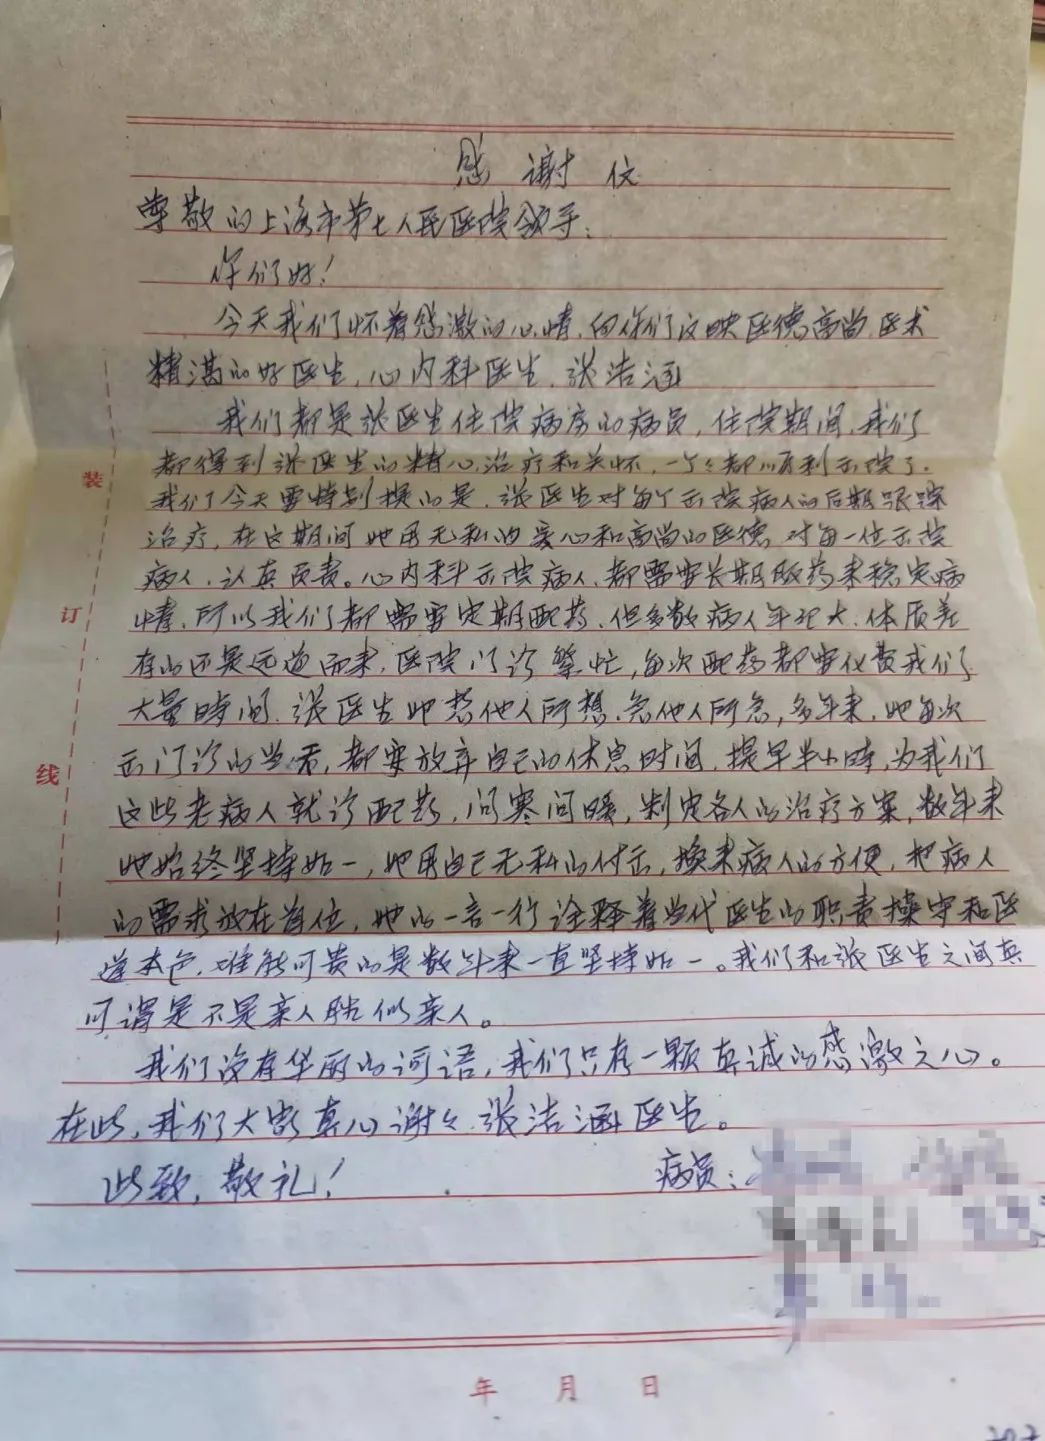 感谢信
尊敬的上海市第七人民医院领导:
你们好!
今天我们怀着感激的心情,向你们反映医德高尚,医术
精湛的好医生,心内科医生,张洁涵
我们都是张医生住院病房的病员,住院期间,我们
都得到张医生的精心治疗和关怀,一个个都顺利出院了。
我们今天要特别提的是,张医生对每个出院病人的后期跟踪
治疗,在这期间她用无私的爱心和高尚的医德,对每一位出院
病人,认真负责。心内科出院病人,都需要长期服药来稳定病
情,所以我们都需要定期配药,但多数病人年纪大,体质差
有的还是远道而来,医院门诊繁忙,每次配药都要化费我们
大量時间,张医生她想他人所想,急他人所急,多年来,她每次
出门诊的当天,都要放弃自己的休息时间,提早半小時,为我们
这些老病人就诊配药,问寒问暖,制定各人的治疗方案,数年来
她始终坚持如一,她用自己无私的付出,换来病人的方便,把病人
的需求放在首位,她的一言一行诠释着当代医生的职责操守和医
道本色,难能可贵的是数年来一直坚持如一。我们和张医生之间真
可谓是不是亲人胜似亲人。
我们没有华丽的词语,我们只有一颗真诚的感激之心。
在此,我们大家真心谢谢张洁涵医生。
此致,敬礼! 病员:
年 月 日
装
订
线